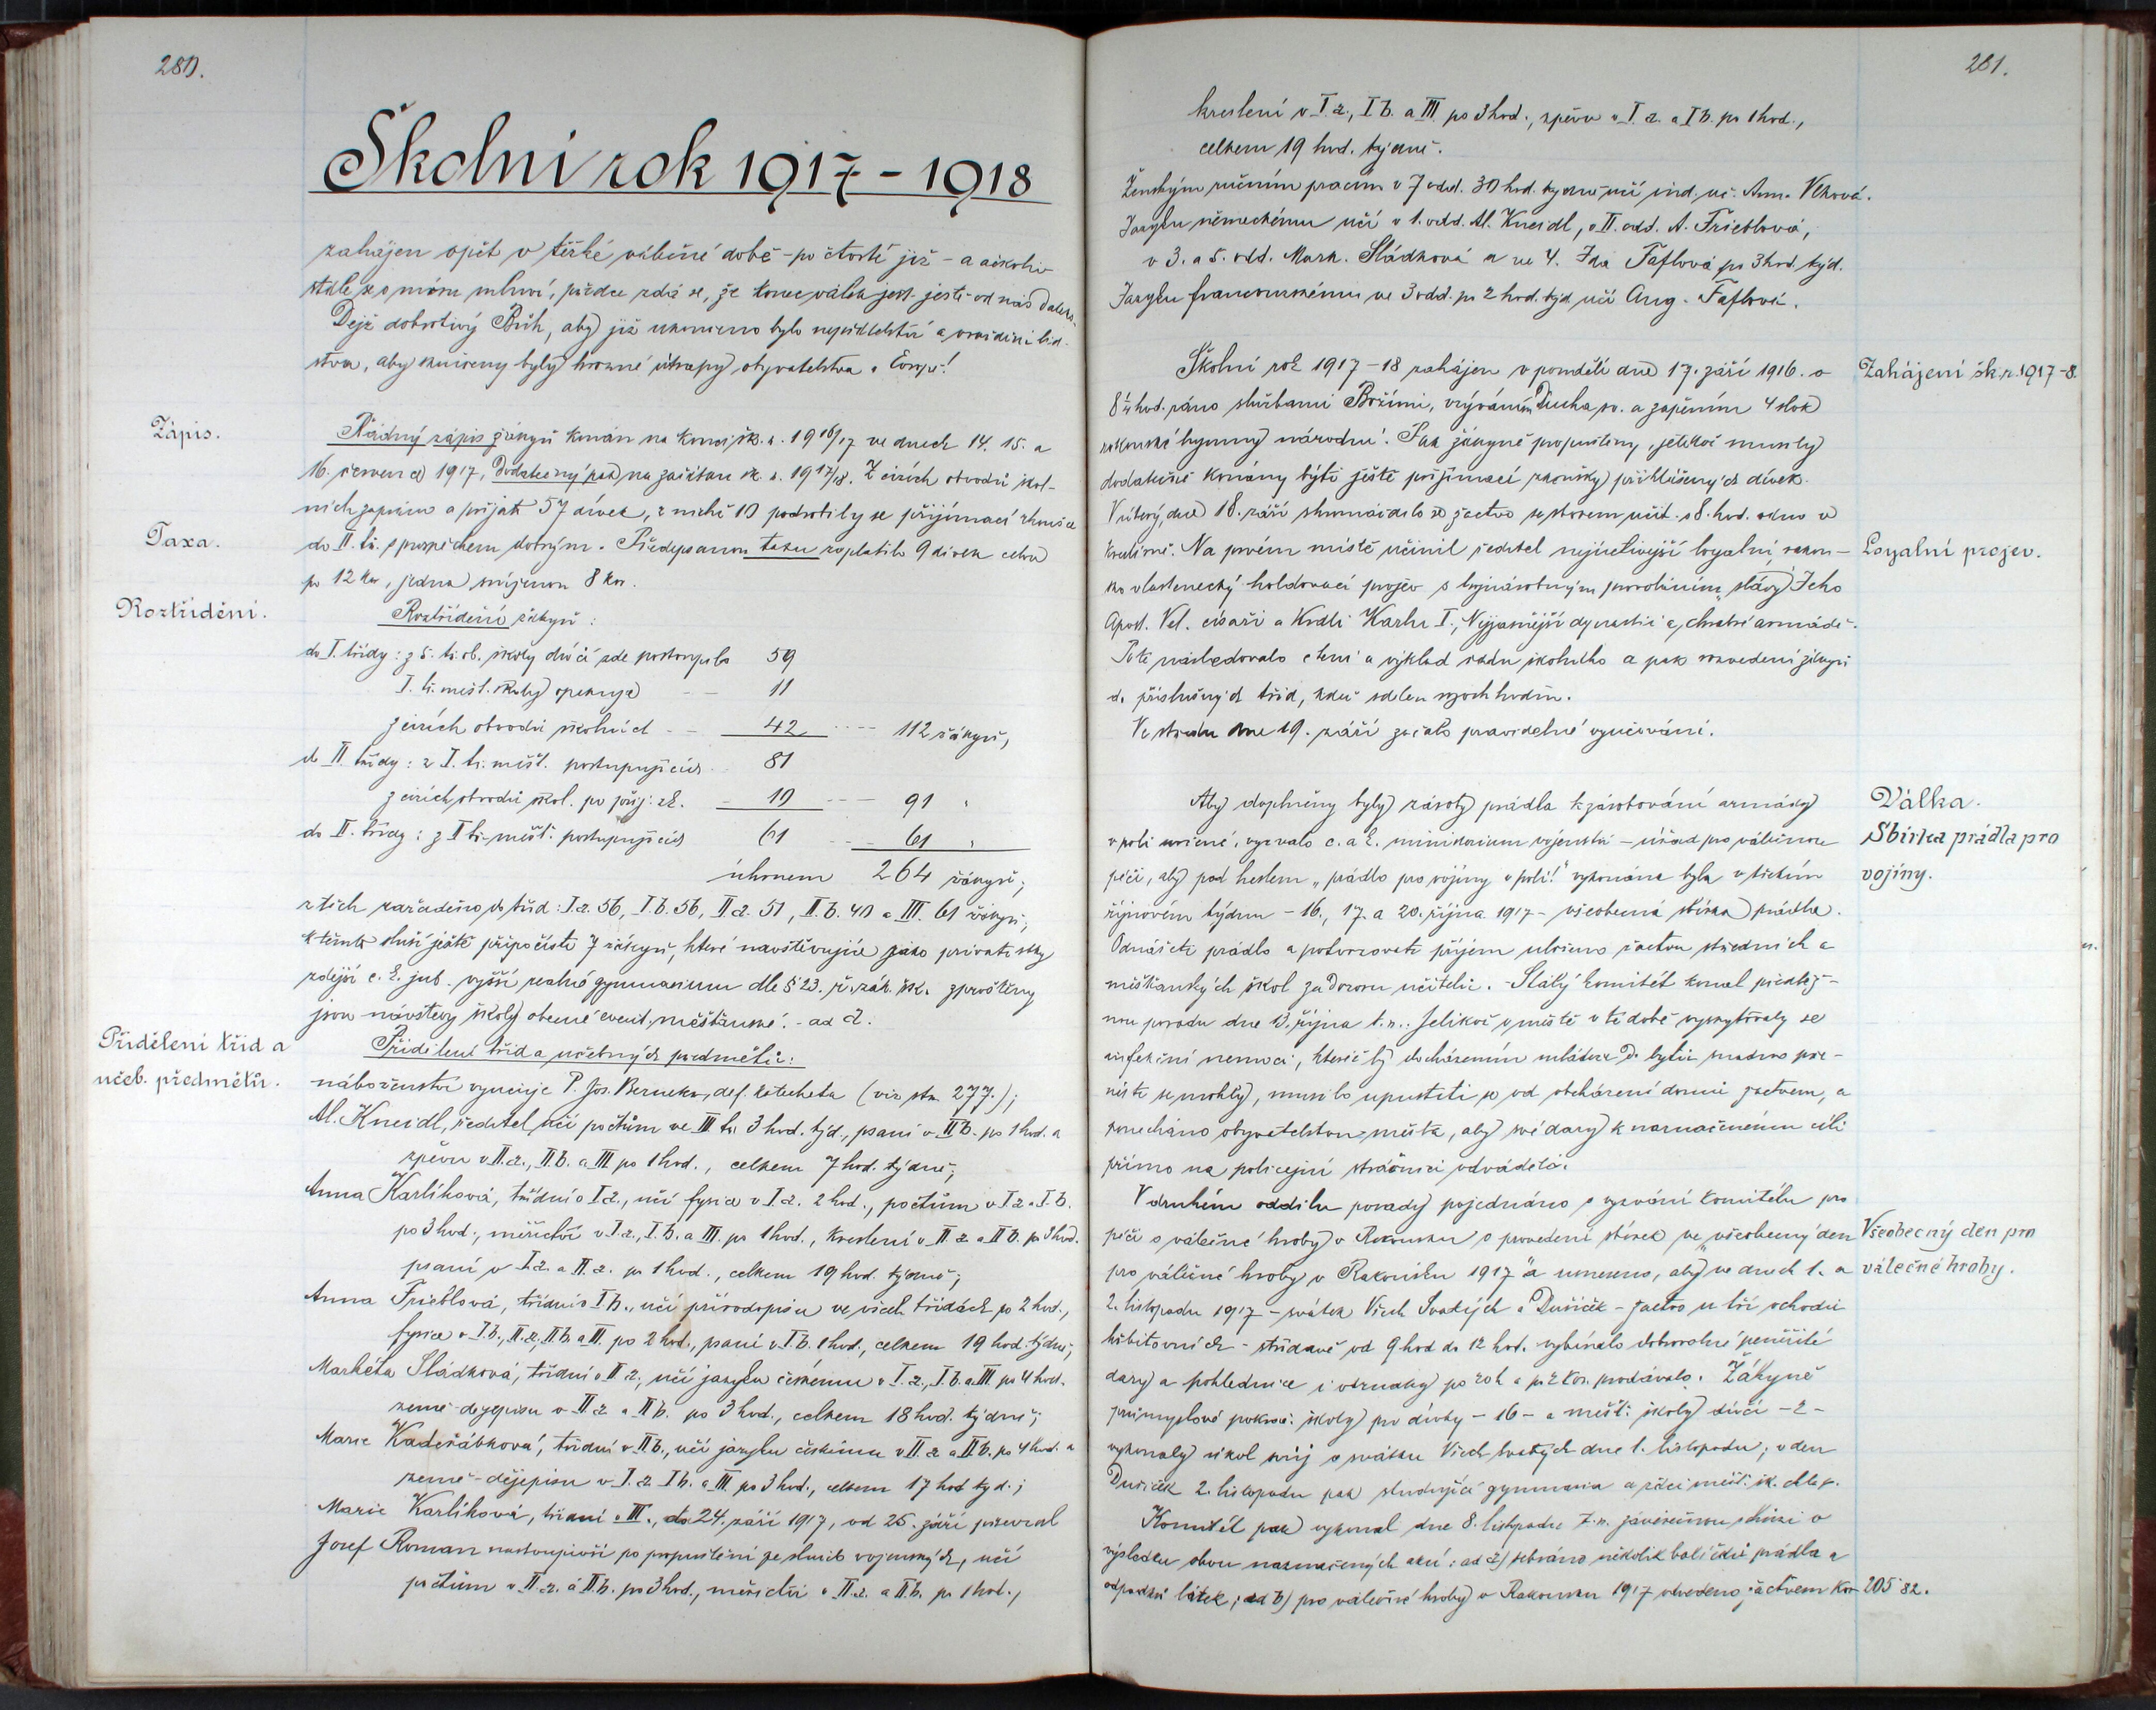 280.
Školní rok 1917-1918
zahájen opět v těžké válečné době - po čtvrté již - a ačkoliv
stále se o míru mluví, přece zdá se, že konec válek jest ještě od nás daleko.
Dejž dobrotivý Bůh, aby již ukončeno bylo nepřátelství a vraždění lid-
stva, aby skončeny byly hrozné útrapy obyvatelstva v Evropě!
Zápis.
Řádný zápis žákyň konán na konci šk. r. 1916/17 ve dnech 14. 15. a
16. července 1917, dodatečný pak na začátku šk. r. 1917/18. Z cizích obvodů škol-
ních zapsáno a přijato 57 dívek, z nichž 10 podrobily se přijímací zkoušce
Taxa.
do II. tř. s prospěchem dobrým. Předepsanou taxu zaplatilo 9 dívek celou
po 12 kor, jedna sníženou 8 kor.
Roztřídění.
Roztřídění žákyň:
do I. třídy: z 5. tř. ob. školy dívčí zde postoupilo 59
I. tř. měšť. školy opakuje - - 11
z cizích obvodů školních - - 42 ---- 112 žákyň,
do II. třídy: z I. tř. měšť. postupujících - 81
z cizích obvodů škol. po přij. zk. - 10 --- 91 "
do II. třídy: z II tř. měšť. postupujících 61 --- 61 "
úhrnem 264 žákyň;
z těch zařaděno do tříd: I.a. 56, I.b. 56, II.a. 51, II.b. 40 a III. 61 žákyň,
k těmto sluší ještě připočísti 7 žákyň, které navštěvujíce jako privatistky
zdejší c. k. jub. vyšší reálné gymnasium dle § 23. ř. zák. šk. zproštěny
jsou návštěvy školy obecné event. měšťanské. - ad a.
Přidělení tříd a
učeb. předmětů.
Přidělení tříd a učebných předmětů:
náboženství vyučuje P. Jos. Bernek, def. katecheta (viz str. 277.);
Al. Kneidl, ředitel, učí počtům ve III. tř. 3 hod. týd., psaní v II.b. po 1 hod. a
zpěvu v II.a., II.b. a III po 1 hod., celkem 7 hod. týdně;
Anna Karlíková, třídní v I.a., učí fysice v I.a. 2 hod., počtům v I.a. a I.b.
po 3 hod., měřictví v I.a., I.b. a III. po 1 hod., kreslení v II.a. a II.b. po 3 hod.
psaní v I.a. a II.a. po 1 hod., celkem 19 hod. týdně;
Anna Frieblová, třídní v I.b., učí přírodopisu ve všech třídách po 2 hod.,
fysice v I.b., II.a., II.b. a III. po 2 hod., psaní v I.b. 1 hod., celkem 19 hod. týdně;
Markéta Sládková, třídní v II.a., učí jazyku českému v I.a., I.b. a III. po 4 hod.
země-dějepisu v II.a. a II.b. po 3 hod., celkem 18 hod. týdně;
Marie Kadeřábková, třídní v II.b., učí jazyku českému v II.a. a II.b. po 4 hod. a
země-dějepisu v I.a. I.b. a III po 3 hod., celkem 17 hod týd.;
Marie Karlíková, třídní v III., do 24. září 1917, od 25. září převzal
Josef Roman nastoupivší po propuštění ze služeb vojenských, učí
počtům v II.a. a II.b. po 3 hod., měřictví v II.a. a II.b. po 1 hod.,
281.
kreslení v I.a., I.b. a III. po 3 hod., zpěvu v I.a. a I.b. po 1 hod.,
celkem 19 hod. týdně.
Ženským ručním pracím v 7 odd. 30 hod. týdně učí ind. uč. Anna Vlková.
Jazyku německému učí v 1. odd. Al. Kneidl, v II. odd. A. Frieblová,
v 3. a 5. odd. Mark. Sládková a ve 4. Ida Taflová po 3 hod. týd.
Jazyku francouzskému ve 3 odd. po 2 hod. týd. učí Aug. Taflová.
Školní rok 1917-18 zahájen v pondělí dne 17. září 1916. o
Zahájení šk. r. 1917-8.
8¼ hod. ráno službami Božími, vzýváním Ducha sv. a zapěním 4 slok
rakouské hymny národní. Pak žákyně propuštěny, jelikož musely
dodatečně konány býti ještě přijímací zkoušky přihlášených dívek.
V úterý dne 18. září shromáždilo se žactvo se sborem učit. o 8. hod. ranní v
kreslírně. Na prvém místě učinil ředitel nejuctivější loyalní, rakou-
Loyalní projev.
sko vlastenecký holdovací projev s trojnásobným provoláním "slávy" Jeho
Apošt. Vel. císaři a králi Karlu I., Nejjasnější dynastii a chrabré armádě.
Poté následovalo čtení a výklad řádu školního a pak rozvedení žákyň
do příslušných tříd, kdež sdělen rozvrh hodin.
Ve středu dne 19. září začalo pravidelné vyučování.
Aby doplněny byly zásoby prádla k zásobování armády
Válka.
v poli určené, vyzvalo c. a k. ministerium vojenství - úřad pro válečnou
Sbírka prádla pro
péči, aby pod heslem "prádlo pro vojíny v poli!" vykonána byla v třetím
vojíny.
říjnovém týdnu - 16., 17. a 20. října 1917 - všeobecná sbírka prádla.
Odnášeti prádlo a potvrzovati příjem uloženo žactvu středních a
měšťanských škol za dozoru učitelů. - Stálý komitét konal předběž-
nou poradu dne 13. října t. r.. Jelikož v městě v té době vyskytovaly se
infekční nemoci, které by docházením mládeže do bytů snadno pře-
nésti se mohly, musilo upustiti se od obcházení domů žactvem, a
ponecháno obyvatelstvu města, aby své dary k naznačenému cíli
přímo na policejní strážnici odvádělo.
V druhém oddílu porady pojednáno o vyzvání komitétu pro
péči o válečné hroby v Rakousku o provedení sbírek ve "všeobecný den
Všeobecný den pro
pro válečné hroby v Rakousku 1917" a usneseno, aby ve dnech 1. a
válečné hroby.
2. listopadu 1917 - svátek Všech Svatých a Dušiček - žactvo u tří vchodů
hřbitovních - střídavě od 9 hod do 12 hod. vybíralo dobrovolné peněžité
dary a pohlednice i odznaky po 20 h a po 2 kor. prodávalo. Žákyně
průmyslové pokrač. školy pro dívky - 16 - a měšť. školy dívčí - 2 -
vykonaly úkol svůj o svátku Všech Svatých dne 1. listopadu; v den
Dušiček 2. listopadu pak studující gymnasia a žáci měšť. šk. chlap.
Komitét pak vykonal dne 8. listopadu t. r. závěrečnou schůzi o
výsledku obou naznačených akcí: ad a) sebráno několik balíčků prádla a
odpadků látek; ad b) pro válečné hroby v Rakousku 1917 odvedeno žactvem Kor 205˙82.